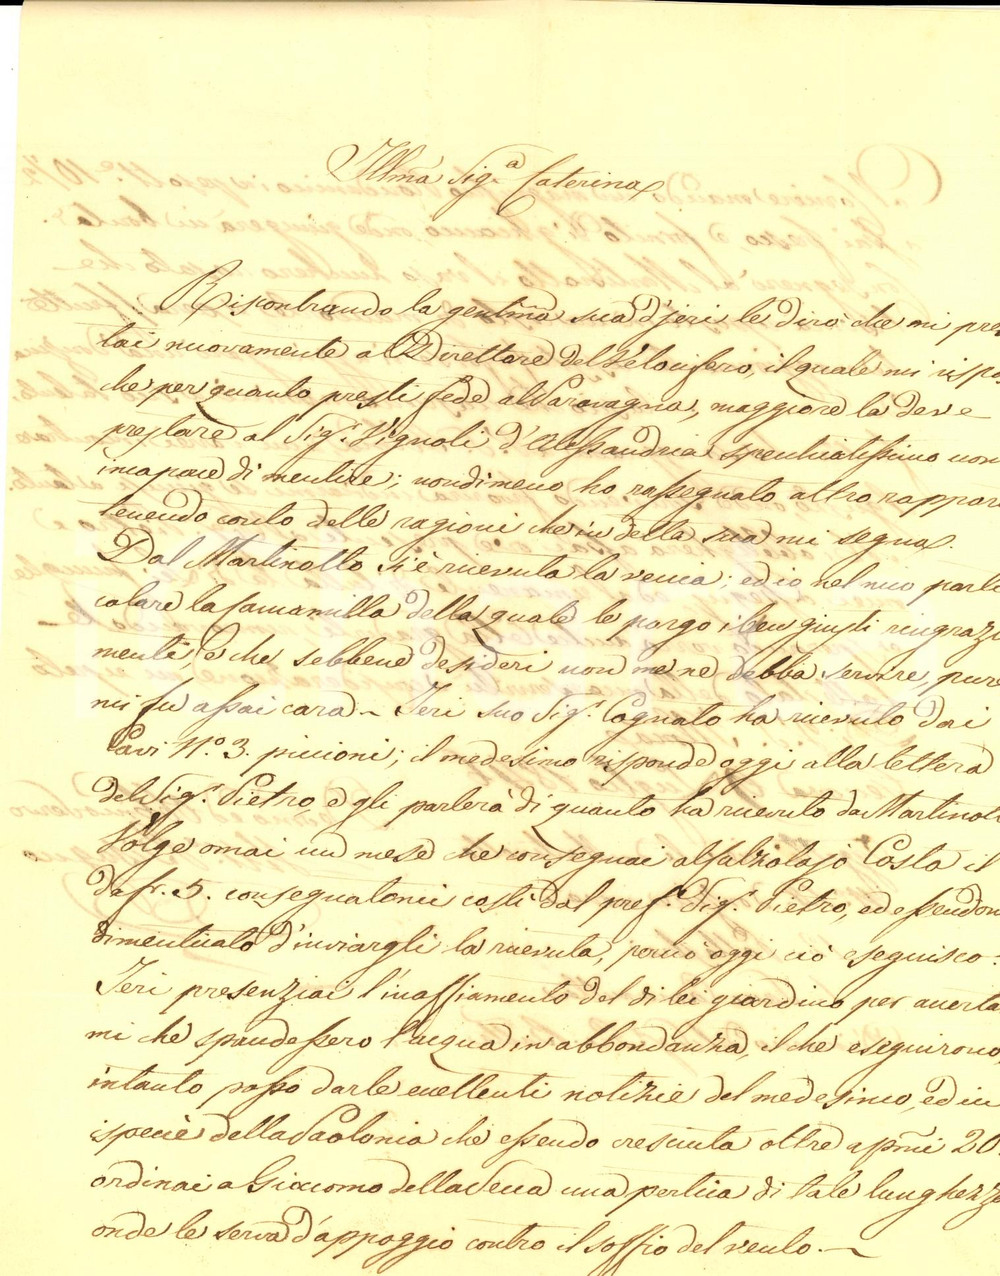 Illma Sig.a Caterina
Riscontrando la gentma sua d'jeri le dirò che mi pres
tai nuovamente al Direttore del Velocifero, il quale mi rispo
che per quanto presti fede al Caravagna, maggiore la deve
prestare al Sig.r Vignoli d'Alessandria specchiatissimo uom
incapace di mentire; nondimeno ho rassegnato altro rappor
tenendo conto delle ragioni che in della sua mi segna.
Dal Martinotto si è ricevuta la veccia; ed io nel mio parti
colare la Camamilla della quale le porgo i ben giusti ringrazia
menti, e che sebbene desideri non me ne debba servire, pure
mi fu assai cara. Jeri suo Sig.r Cognato ha ricevuto dai
Cavi N.o 3. piccioni; il medesimo risponde oggi alla lettera
del Sig.r Pietro e gli parlerà di quanto ha ricevuto da Martinott
Volge omai un mese che consegnai al falzolajo Costa il
da fr. 5. consegnatomi costì dal pref.o Sig.r Pietro, ed essendom
dimenticato d'inviargli la ricevuta, perciò oggi ciò eseguisco:
Jeri presenziai l'inaffiamento del di lei giardino per accerta
mi che spandessero l'acqua in abbondanza, il che eseguirono,
intanto posso darle eccellenti notizie del medesimo, ed in
ispecie della Paolonia che essendo cresciuta oltre a pmi 20
ordinai a Giacomo della Secca una pertica di tale lunghezza
onde le serva d'appoggio contro il soffio del vento.